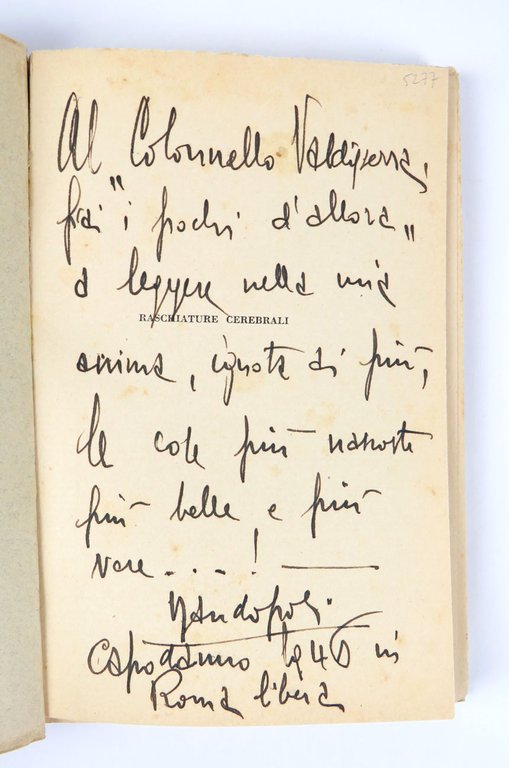 5277
Al Colonnello Valdiserra,
fra "i pochi d'allora"
a leggere nella mia
RASCHIATURE CEREBRALI
anima, ignota ai più,
le cose più nascoste
più belle e più
vere...!
Capodanno 1946 in
Roma libera